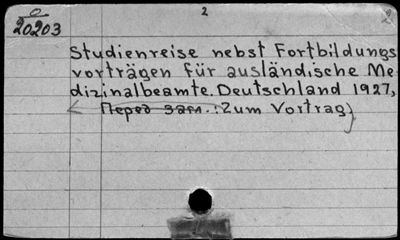 2
2
O
20203
Studienreise nebst Fortbildungs
vorträgen für ausländische Me-
dizinalbeamte. Deutschland 1927,
Перед загл.: Zum Vortrag